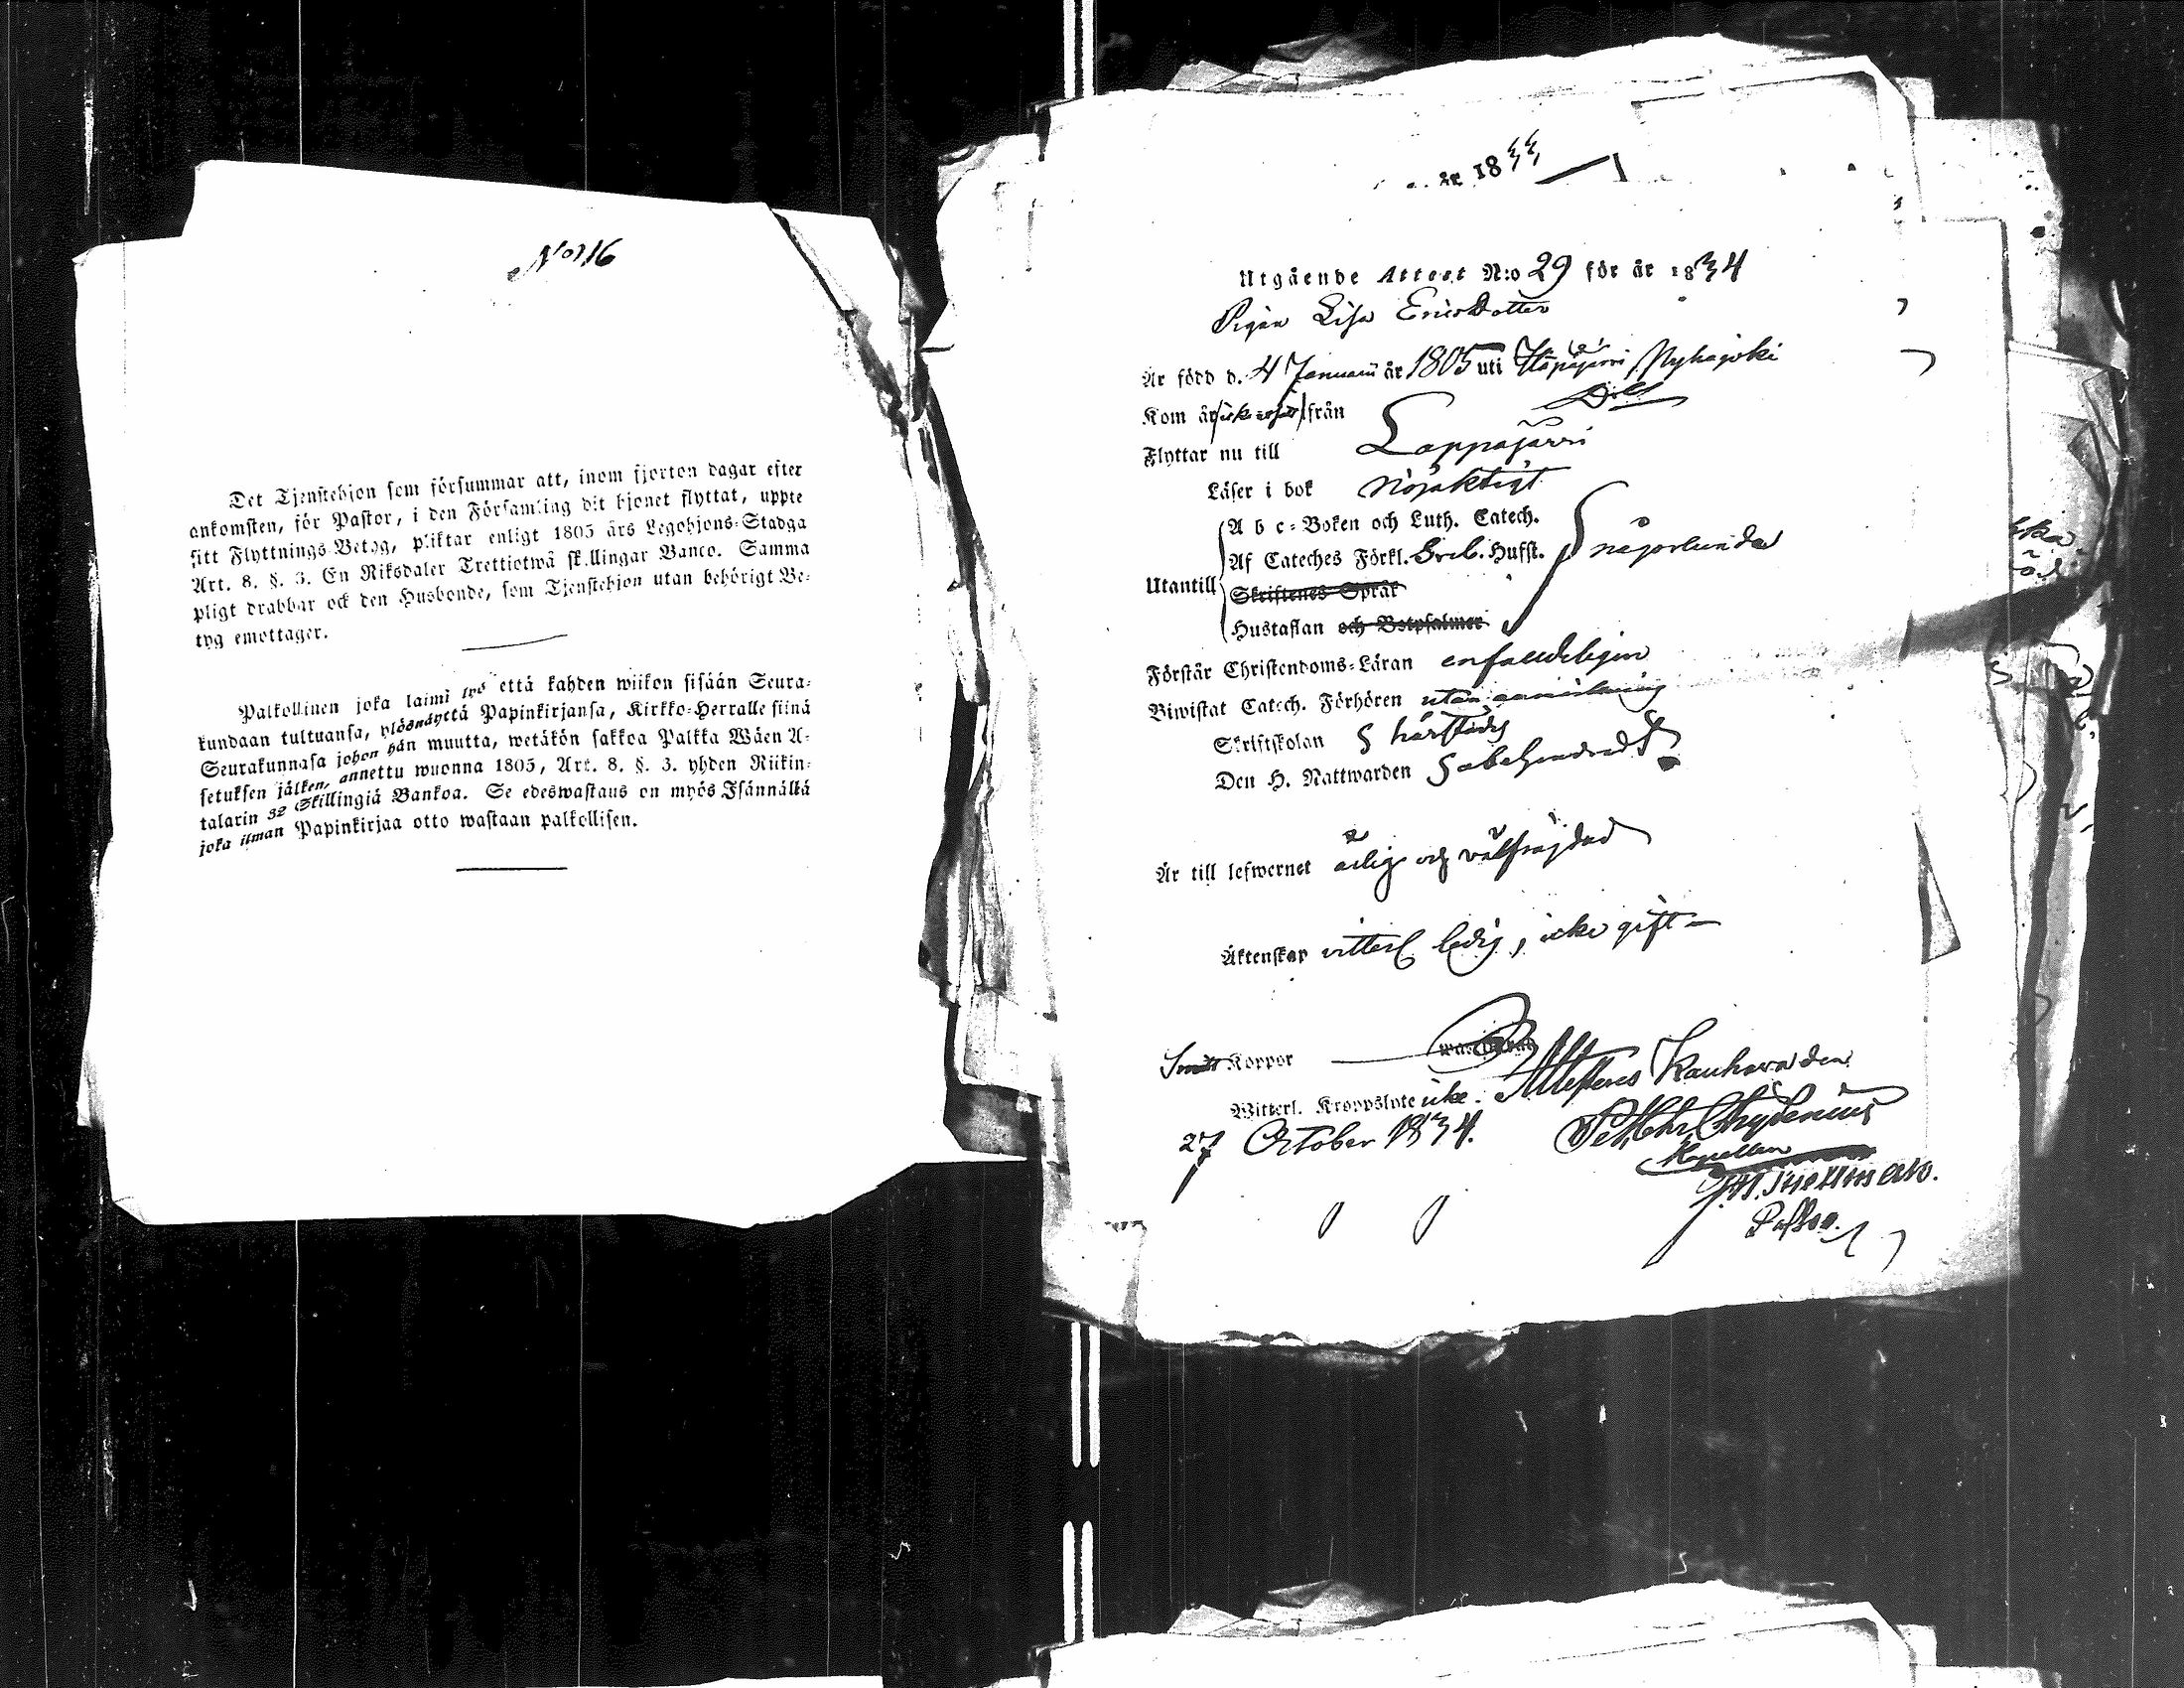 No 116
Det Tjenstehjon som försummar att, inom fjorton dagar efter
ankomsten, för Pastor, i den Församling dit hjonet flyttat, uppte
sitt Flyttnings-Betyg, pliktar enligt 1805 års Legohjons-Stadga
Art. 8. §. 3. En Riksdaler Trettiotwå skillingar Banco. Samma
pligt drabbar ock den Husbonde, som Tjenstehjon utan behörigt Be-
tyg emottager.
Palkollinen joka laimi lyö että kahden wiikon sisään Seura-
kundaan tultuansa, ylösnäyttä Papinkirjansa, Kirkko-Herralle siinä
Seurakunnasa johon hän muutta, wetäkön sakkoa Palkka Wäen A-
setuksen jälken, annettu wuonna 1805, Art. 8. §. 3. yhden Riikin-
talarin 32 Skillingiä Bankoa. Se edeswastaus on myös Isännällä
joka ilman Papinkirjaa otto wastaan palkollisen.
år 18
Utgående Attest N:o 29 för år 1834
Pigan Lisa Ericsdotter
Är född d. 4 Januarii år 1805 uti
Kom år från
Flyttar nu till Lappajärvi
Läser i bok nöjaktigt
A b c-Boken och Luth. Catech.
Af Cateches Förkl. Hufst. någorlunda
Utantill
Skriftenes Språk
Hustaflan och Botpsalmer
Förstår Christendoms-Läran enfaldeligen
Biwistat Catech. Förhören utan anmärkning
Skriftskolan härstädes
Den H. Nattwarden
Är till lefwernet ärlig och välfrejdad
Äktenskap vitterl. ledig, icke gift
Koppor
Witterl. Kroppslyte icke. Attesteras Kauhava den
27 October 1834. Chydenius
Kapellan
Pastor.